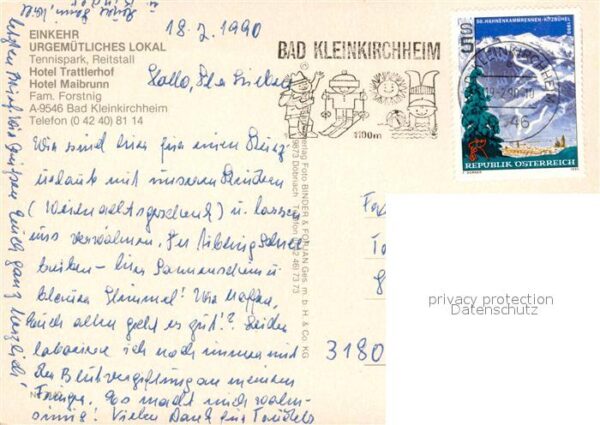 18.2.1990
EINKEHR
URGEMÜTLICHES LOKAL
Tennispark, Reitstall
Hotel Trattlerhof
Hotel Maibrunn
Fam. Forstnig
A-9546 Bad Kleinkirchheim
Telefon (0 42 40) 81 14
BAD KLEINKIRCHHEIM
1100m
50. HAHNENKAMMRENNEN - KITZBÜHEL
5S
REPUBLIK ÖSTERREICH
Hallo, Ihr Lieben
Wir sind hier für einen Kurz
urlaub mit unseren Kindern
(Weihnachtsgeschenk) u. lassen
uns verwöhnen. Im
treiben - hier Sonnenschein u
blauer Himmel! Wir hoffen,
Euch allen geht es gut!? Leider
laboriere ich noch immer mit
der Blutvergiftung an meinem
Finger. Es macht mich wahn-
sinnig! Vielen Dank für
Brief. Wir grüßen Euch ganz herzlich!
Verlag Foto BINDER & FORJAN Ges. m. b. H. & Co. KG
9873 Döbriach
3180
privacy protection
Datenschutz